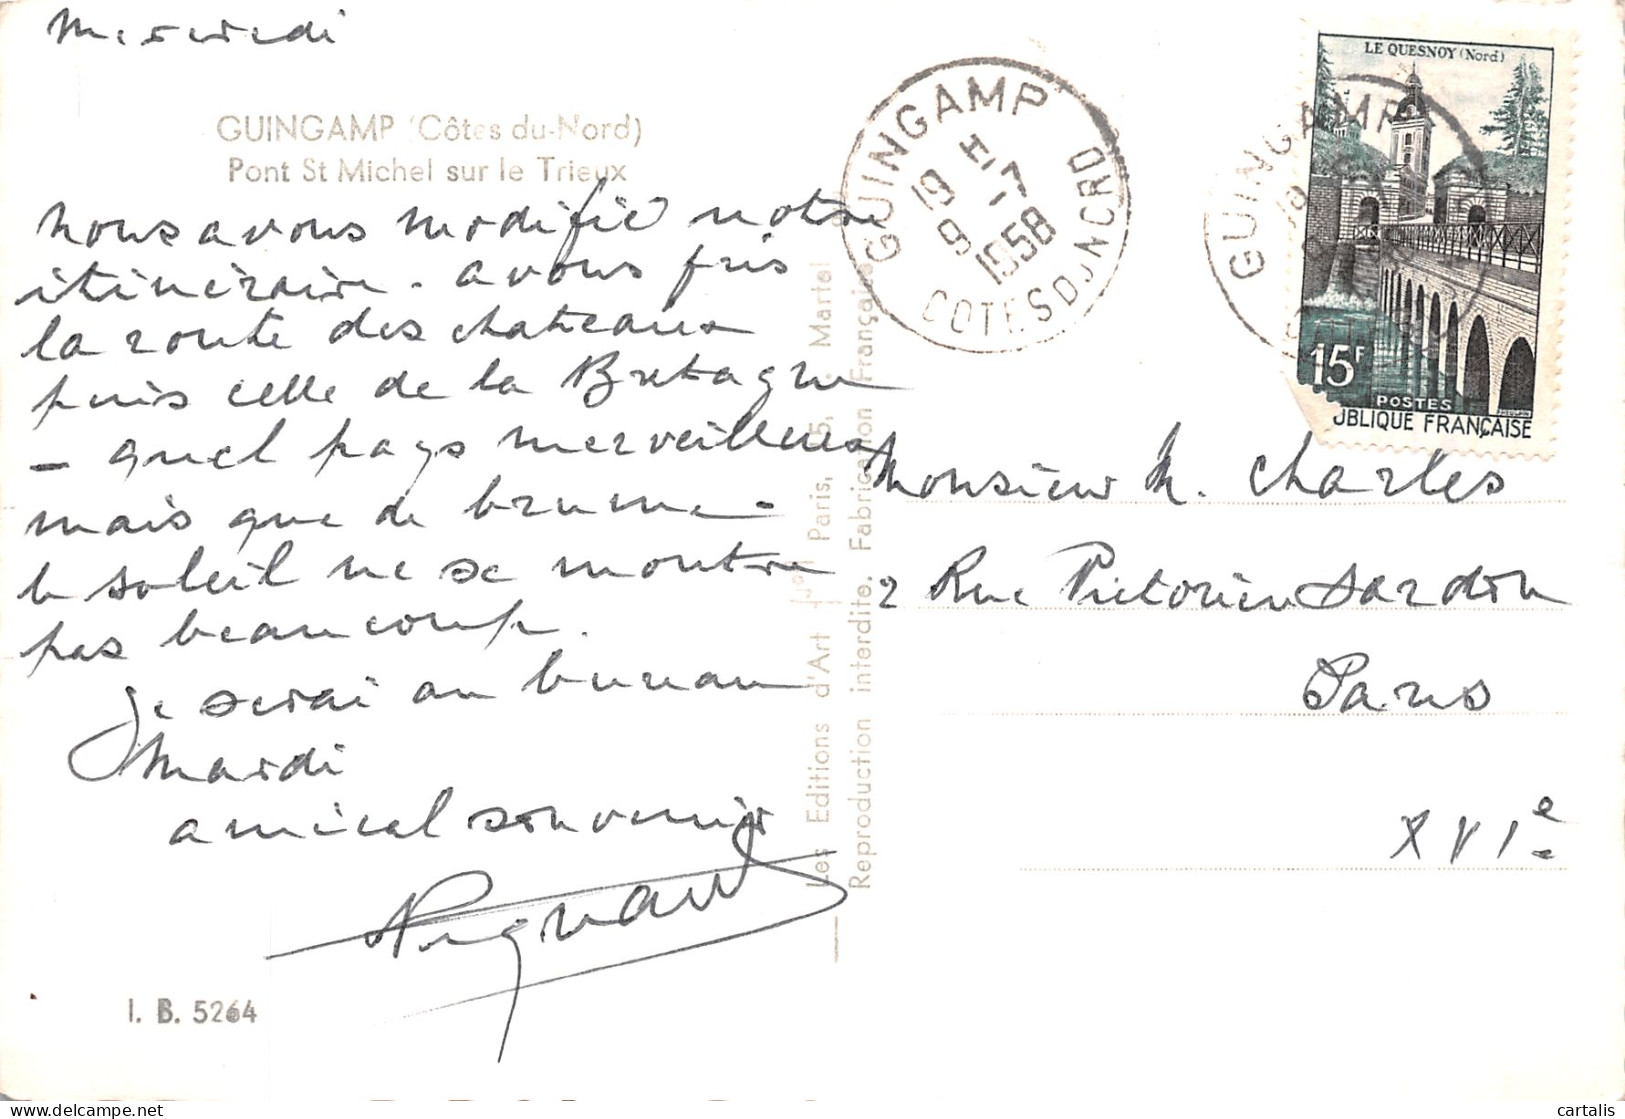 Mercredi
GUINGAMP (Côtes du-Nord)
Pont St Michel sur le Trieux
nous avons modifié notre
itinéraire. avons pris
la route des chateaux
puis celle de la Bretagne
- quel pays merveilleux
mais que de brume -
le soleil ne se montre
pas beaucoup.
Je serai au bureau
Mardi
amical souvenir
I. B. 5264
Les Editions d'Art Paris, 15, Martel
Reproduction interdite. Fabrication Française
GUINGAMP
19 H
9 -7
1958
COTES DU NORD
GUINGAMP
LE QUESNOY (Nord)
15F
POSTES
UBLIQUE FRANÇAISE
Monsieur M. Charles
2 Rue Victorien Sardou
Paris
XVIe
cartalis